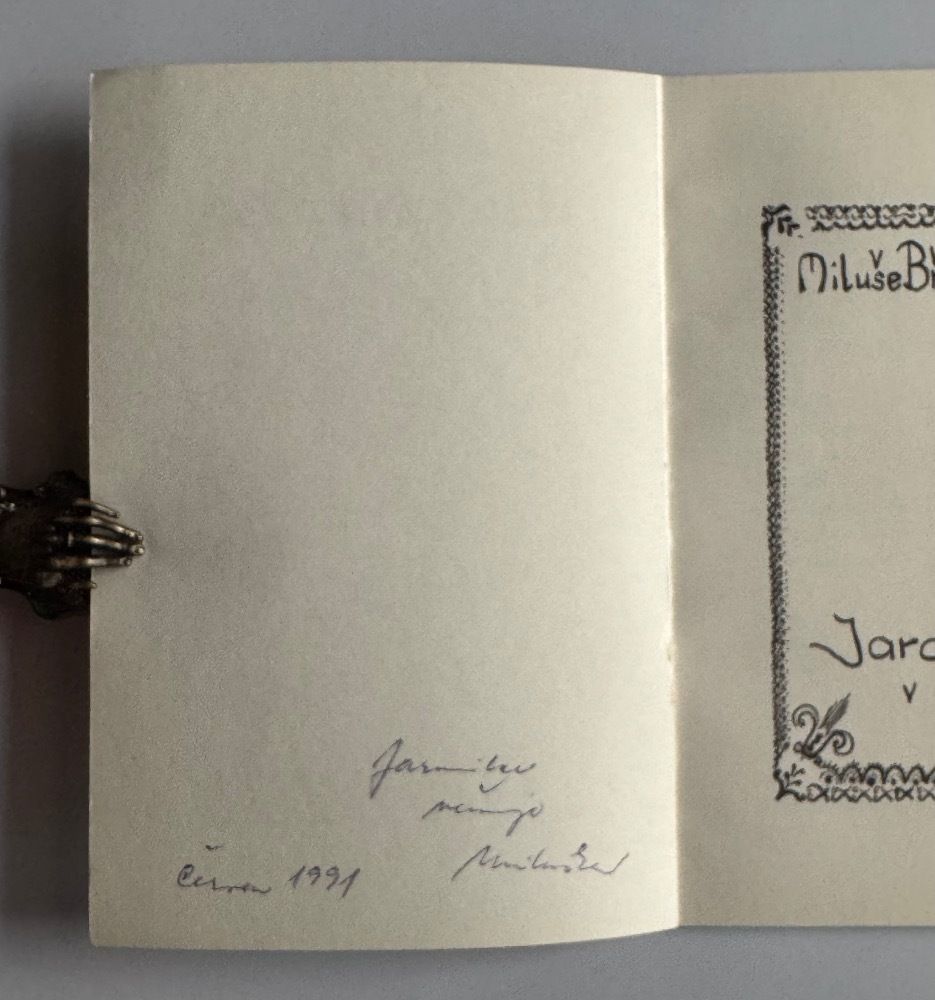 Jarmilce
věnuje
Miluška
Červen 1991
Miluše Bř
Jaro
v